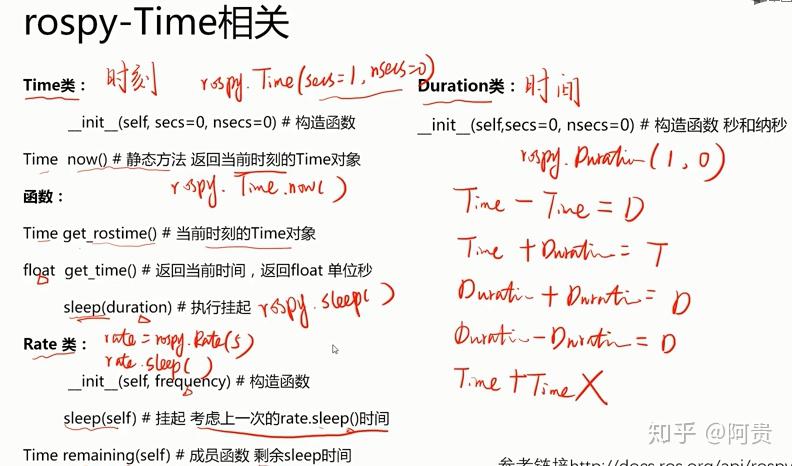 rospy-Time相关
Time类： 时刻 rospy.Time(secs=1, nsecs=0)
__init__(self, secs=0, nsecs=0) # 构造函数
Time now() # 静态方法 返回当前时刻的Time对象
rospy.Time.now()
函数：
Time get_rostime() # 当前时刻的Time对象
float get_time() # 返回当前时间，返回float 单位秒
sleep(duration) # 执行挂起 rospy.sleep()
Rate 类： rate=rospy.Rate(5)
rate.sleep()
__init__(self, frequency) # 构造函数
sleep(self) # 挂起 考虑上一次的rate.sleep()时间
Time remaining(self) # 成员函数 剩余sleep时间
Duration类： 时间
__init__(self,secs=0, nsecs=0) # 构造函数 秒和纳秒
rospy.Duration(1,0)
Time - Time = D
Time + Duration = T
Duration + Duration = D
Duration - Duration = D
Time + Time X
知乎 @阿贵